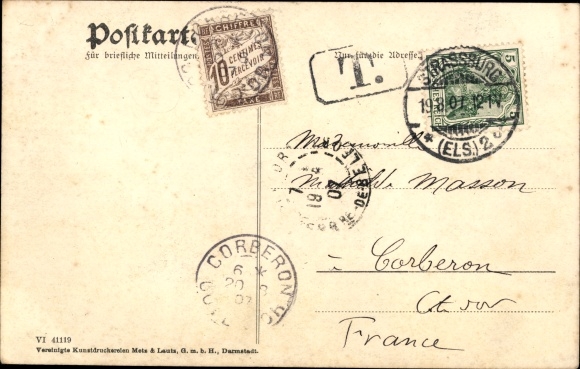 Postkarte
Für briefliche Mitteilungen.
Nur für die Adresse.
CHIFFRE
10 CENTIMES
A PERCEVOIR
TAXE
T.
5
STRASSBURG
19.8.07. 12-1V.
* (ELS.) 2
Mademoiselle
Masson
à Corberon
Cte d'or
France
CORBERON
6 *
20 8
07
CÔTE D'OR
VI 41119
Vereinigte Kunstdruckereien Metz & Lautz, G. m. b. H., Darmstadt.